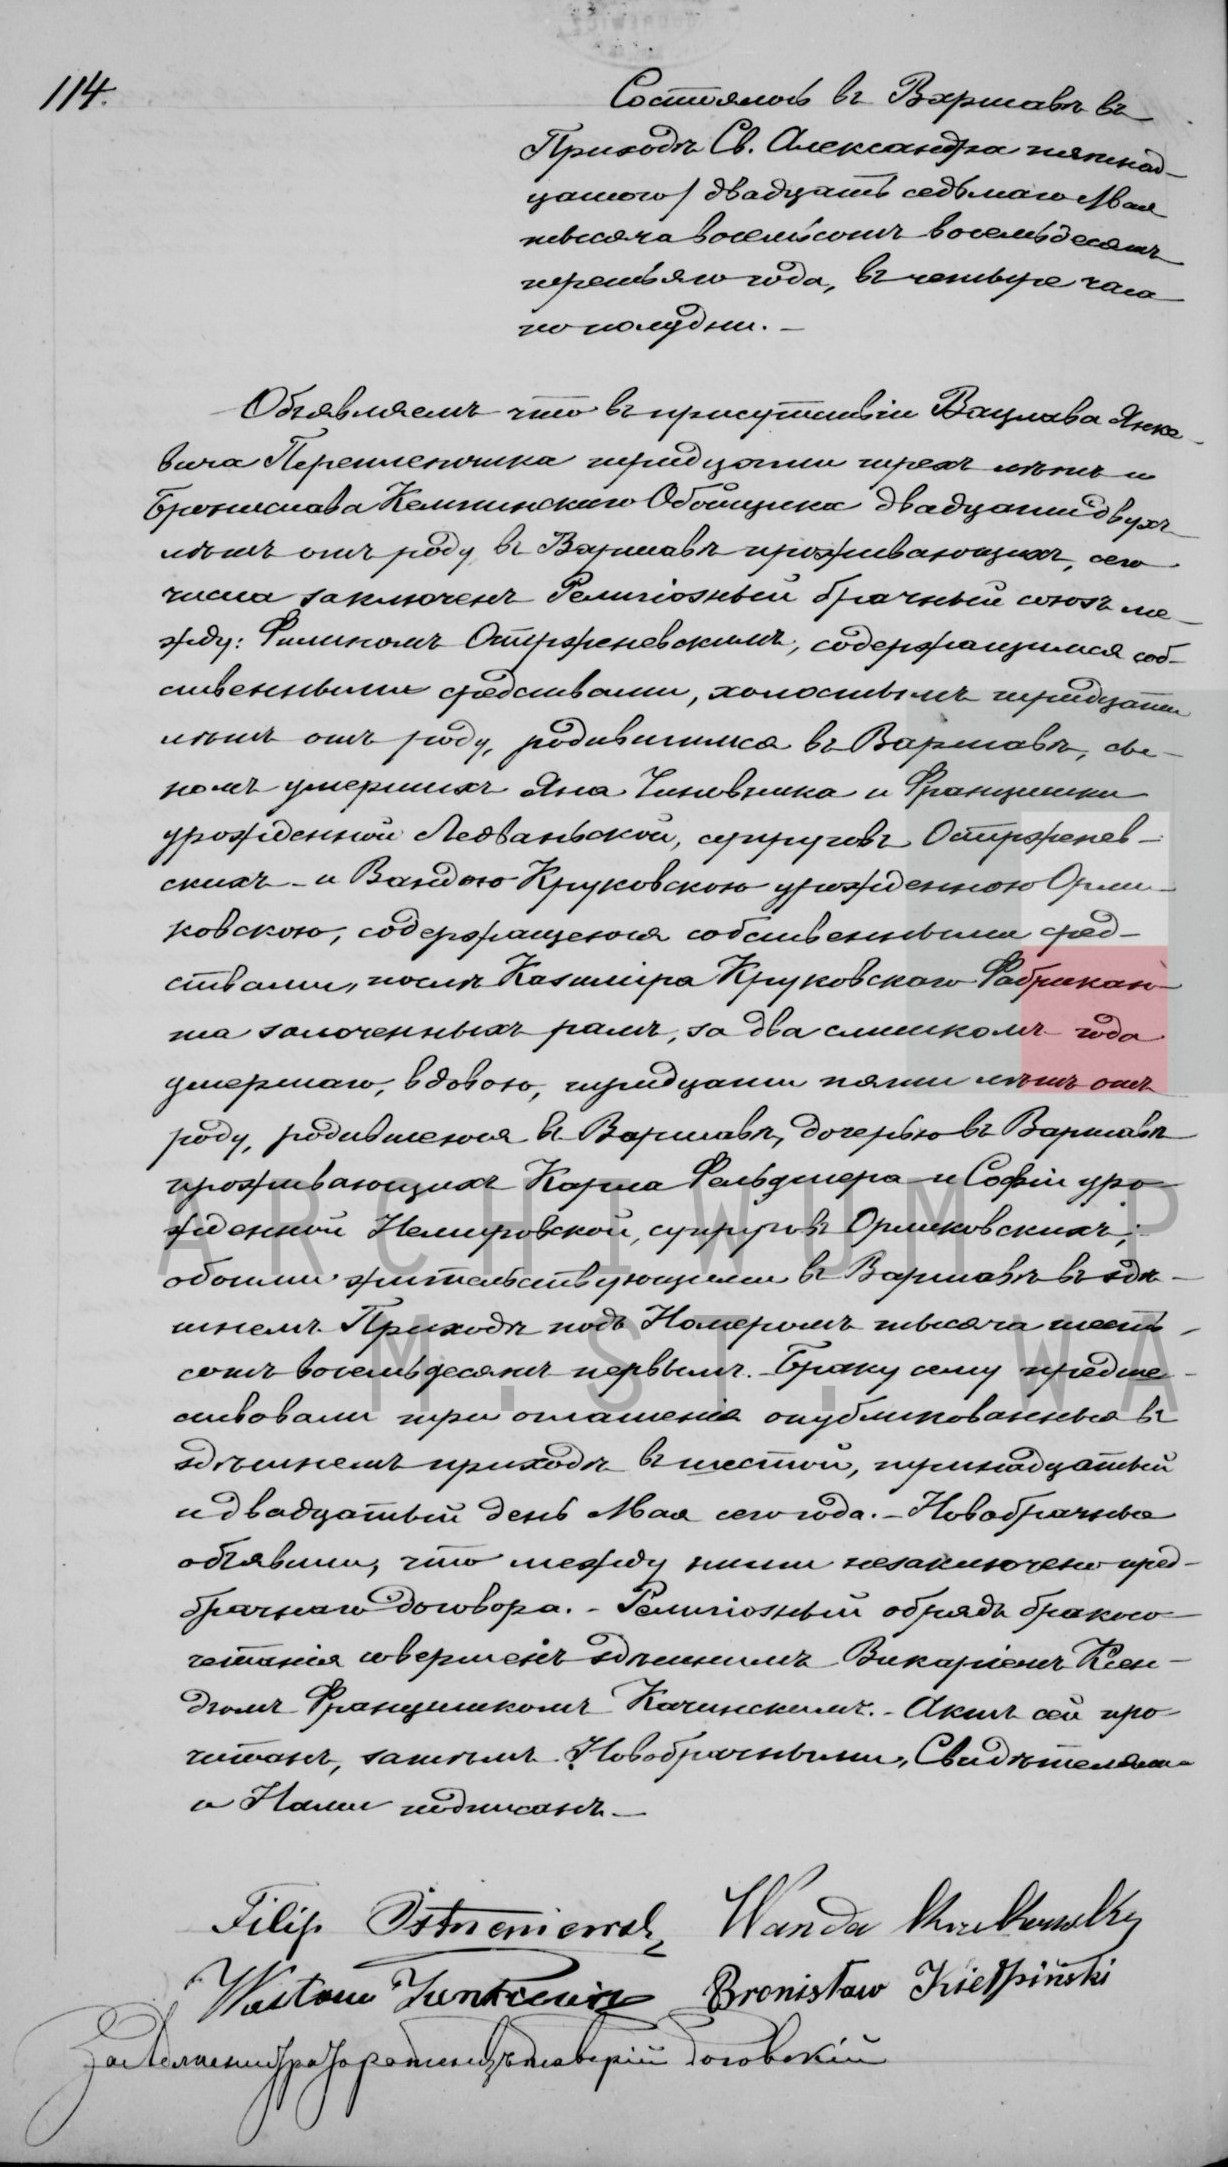 114.
Состоялось въ Варшавѣ въ
Приходѣ Св. Александра пятнад-
цатого/двадцать седьмаго Мая
тысяча восемьсотъ восемьдесятъ
третьяго года, въ четыре часа
по полудни. —
Объявляемъ что въ присутствіи Вацлава Янке-
вича Переплетчика тридцати трехъ лѣтъ и
Бронислава Келпинскаго Обойщика двадцати двухъ
лѣтъ отъ роду въ Варшавѣ проживающихъ, сего
числа заключенъ Религіозный брачный союзъ ме-
жду: Филипомъ Острженевскимъ, содержащимся соб-
ственными средствами, холостымъ тридцати
лѣтъ отъ роду, родившимся въ Варшавѣ, сы-
номъ умершихъ Яна Чиновника и Францишки
урожденной Ледваньской, супруговъ Острженев-
скихъ - и Вандою Круковскою урожденною Орли-
ковскою, содержащеюся собственными сред-
ствами, послѣ Казиміра Круковскаго Фабрикан-
та золоченныхъ рамъ, за два слишкомъ года
умершаго, вдовою, тридцати пяти лѣтъ отъ
роду, родившеюся въ Варшавѣ, дочерью въ Варшавѣ
проживающихъ Карла Фельдшера и Софіи уро-
жденной Немировской, супруговъ Орликовскихъ;
обоими жительствующими въ Варшавѣ въ здѣ-
шнемъ Приходѣ подъ Номеромъ тысяча шесть-
сотъ восемьдесятъ первымъ. - Браку сему предше-
ствовали три оглашенія опубликованныя въ
здѣшнемъ приходѣ въ шестой, тринадцатый
и двадцатый день Мая сего года. - Новобрачные
объявили, что между ними незаключено пред-
брачнаго договора. - Религіозный обрядъ бракосо-
четанія совершенъ здѣшнимъ Викаріемъ Ксен-
дзомъ Францишкомъ Качинскимъ. - Актъ сей про-
читанъ, затѣмъ Новобрачными, Свидѣтелями
и Нами подписанъ. —
Filip Ostrzeniewski Wanda Krukowska
Wacław Jankiewicz Bronisław Kiełpiński
ARCHIWUM P
M. ST. WA